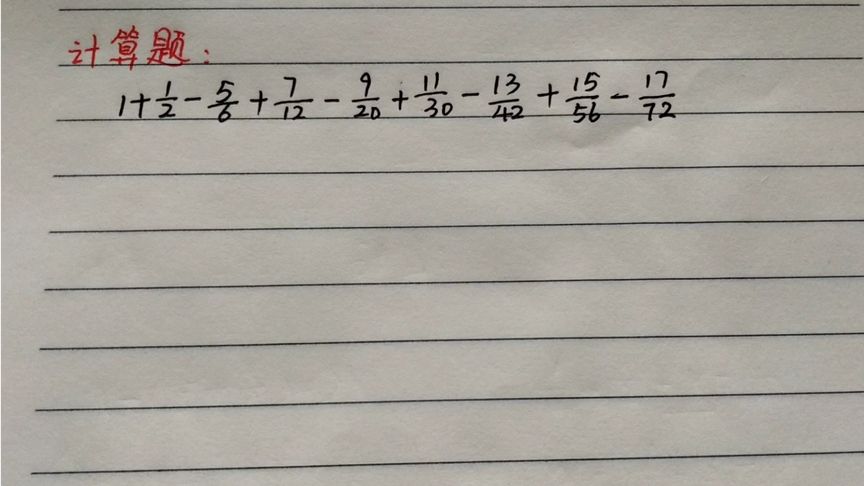 计算题:
1+1/2-5/6+7/12-9/20+11/30-13/42+15/56-17/72